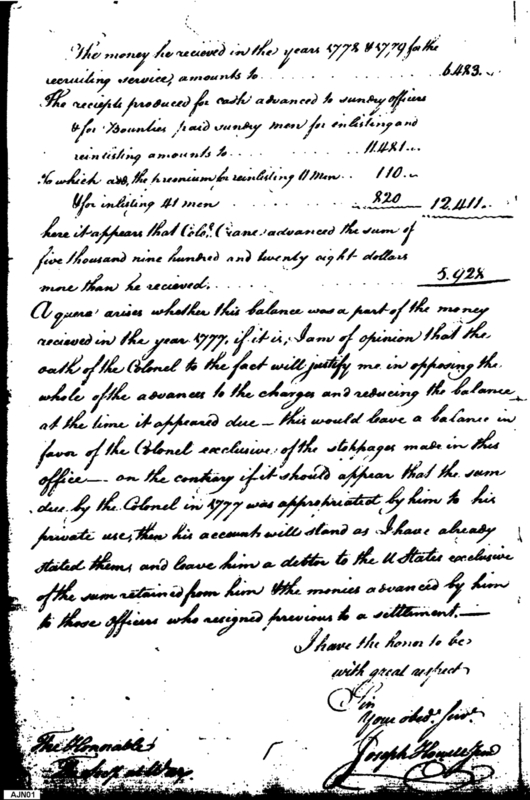 The money he recieved in the years 1778 & 1779 for the
recruiting service, amounts to . . . . . . . . . . 6.483..
The reciepts produced for cash advanced to sundry officers
& for Bounties paid sundry men for enlisting and
reinlisting amounts to . . . . . . . . 11.481..
to which add, the premium for reinlisting 11 men . . 110..
& for inlisting 41 men . . . . . . . . 820 12,411..
here it appears that Colo. Crane advanced the sum of
five thousand nine hundred and twenty eight dollars
more than he recieved. . . . . . . . . . . 5.928
A quere arises whether this balance was a part of the money
recieved in the year 1777, if it is, I am of opinion that the
oath of the Colonel to the fact will justify me in opposing the
whole of the advances to the charges and reducing the balance
at the time it appeared due – this would leave a balance in
favor of the Colonel exclusive of the stoppages made in this
office — on the contrary if it should appear that the sum
due by the Colonel in 1777 was appropriated by him to his
private use, then his accounts will stand as I have already
stated them, and leave him a debtor to the U States exclusive
of the sum retained from him & the monies advanced by him
to those Officers who resigned previous to a settlement. —
I have the honor to be
with great respect
Sir
Your obed. Servt.
Joseph Howell Jun
The Honorable
The Secy at War
AJN01